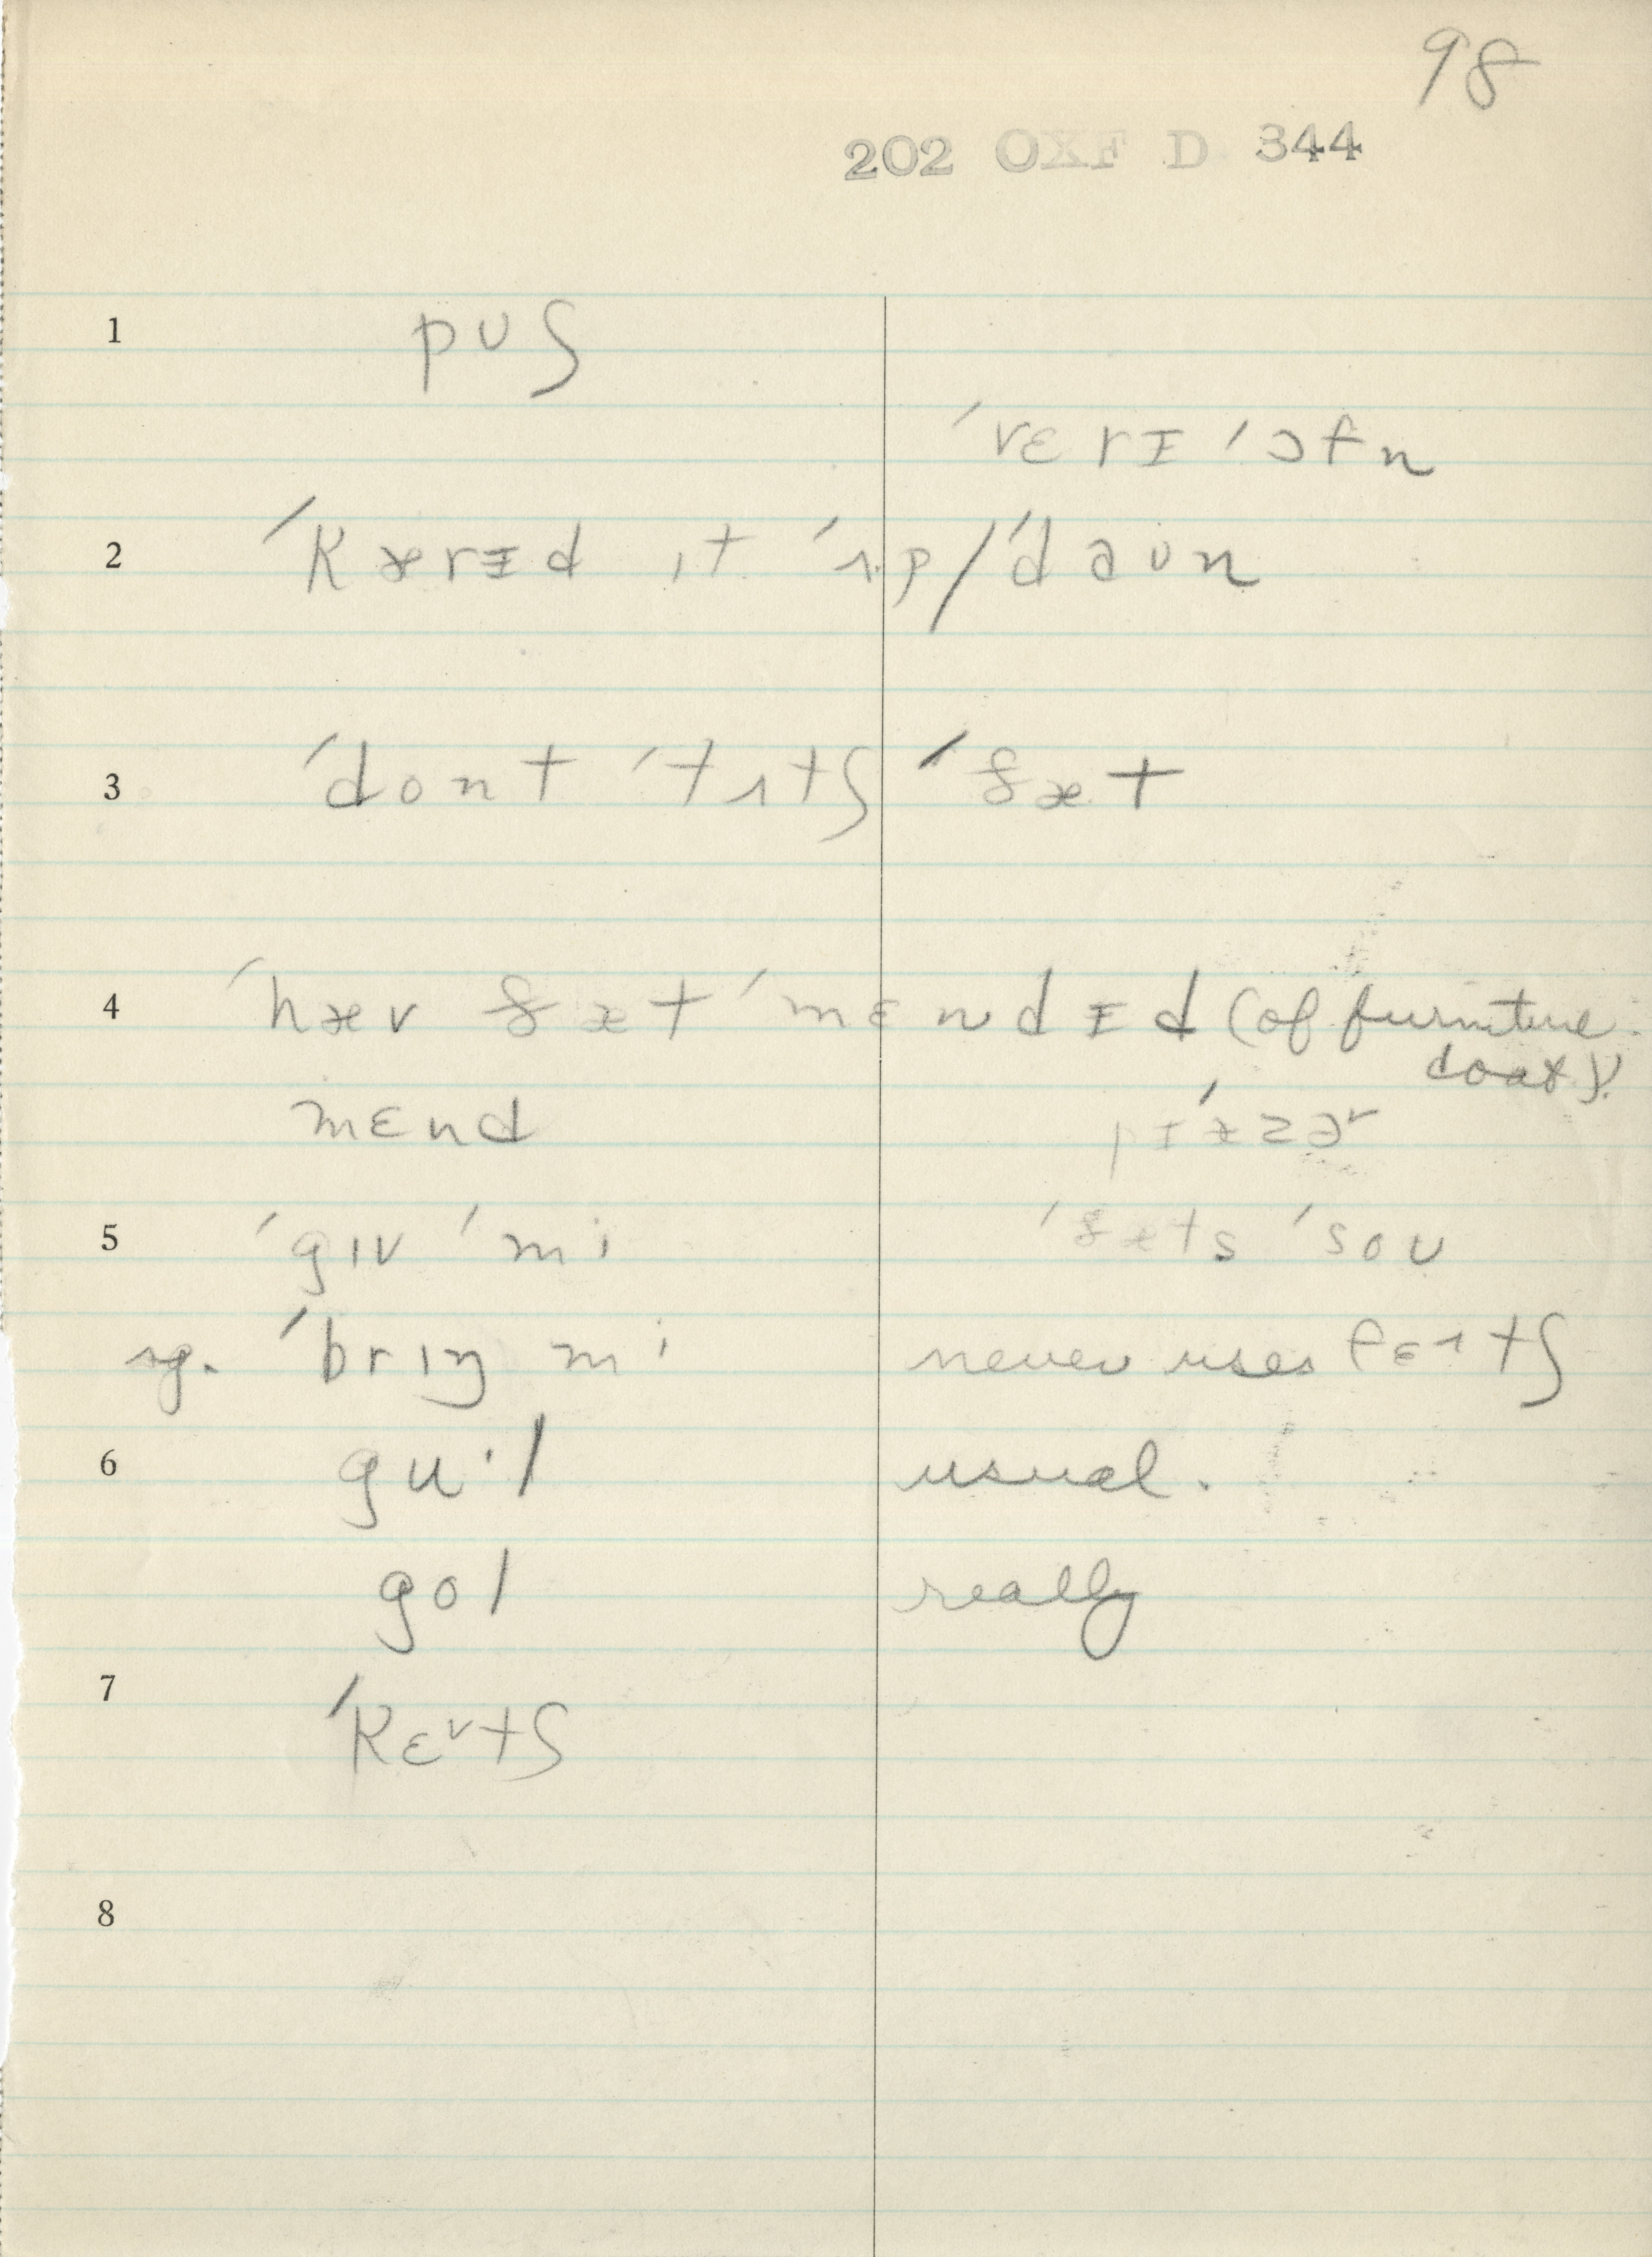 98
202 OXF D 344
1 pʊʃ
ˈvɛrɪ ˈɔfn
2 ˈkærɪd ɪt ˈʌp/ˈdaʊn
3 ˈdont ˈtʌtʃ ˈðæt
4 ˈhæv ðæt ˈmɛndɪd (of furniture.
coat).
mɛnd
5 ˈgɪv ˈmi ˈðæts ˈsoʊ
ˈbrɪŋ mi never uses
6 gu·l usual.
gol really
7 ˈkɛvtʃ
8